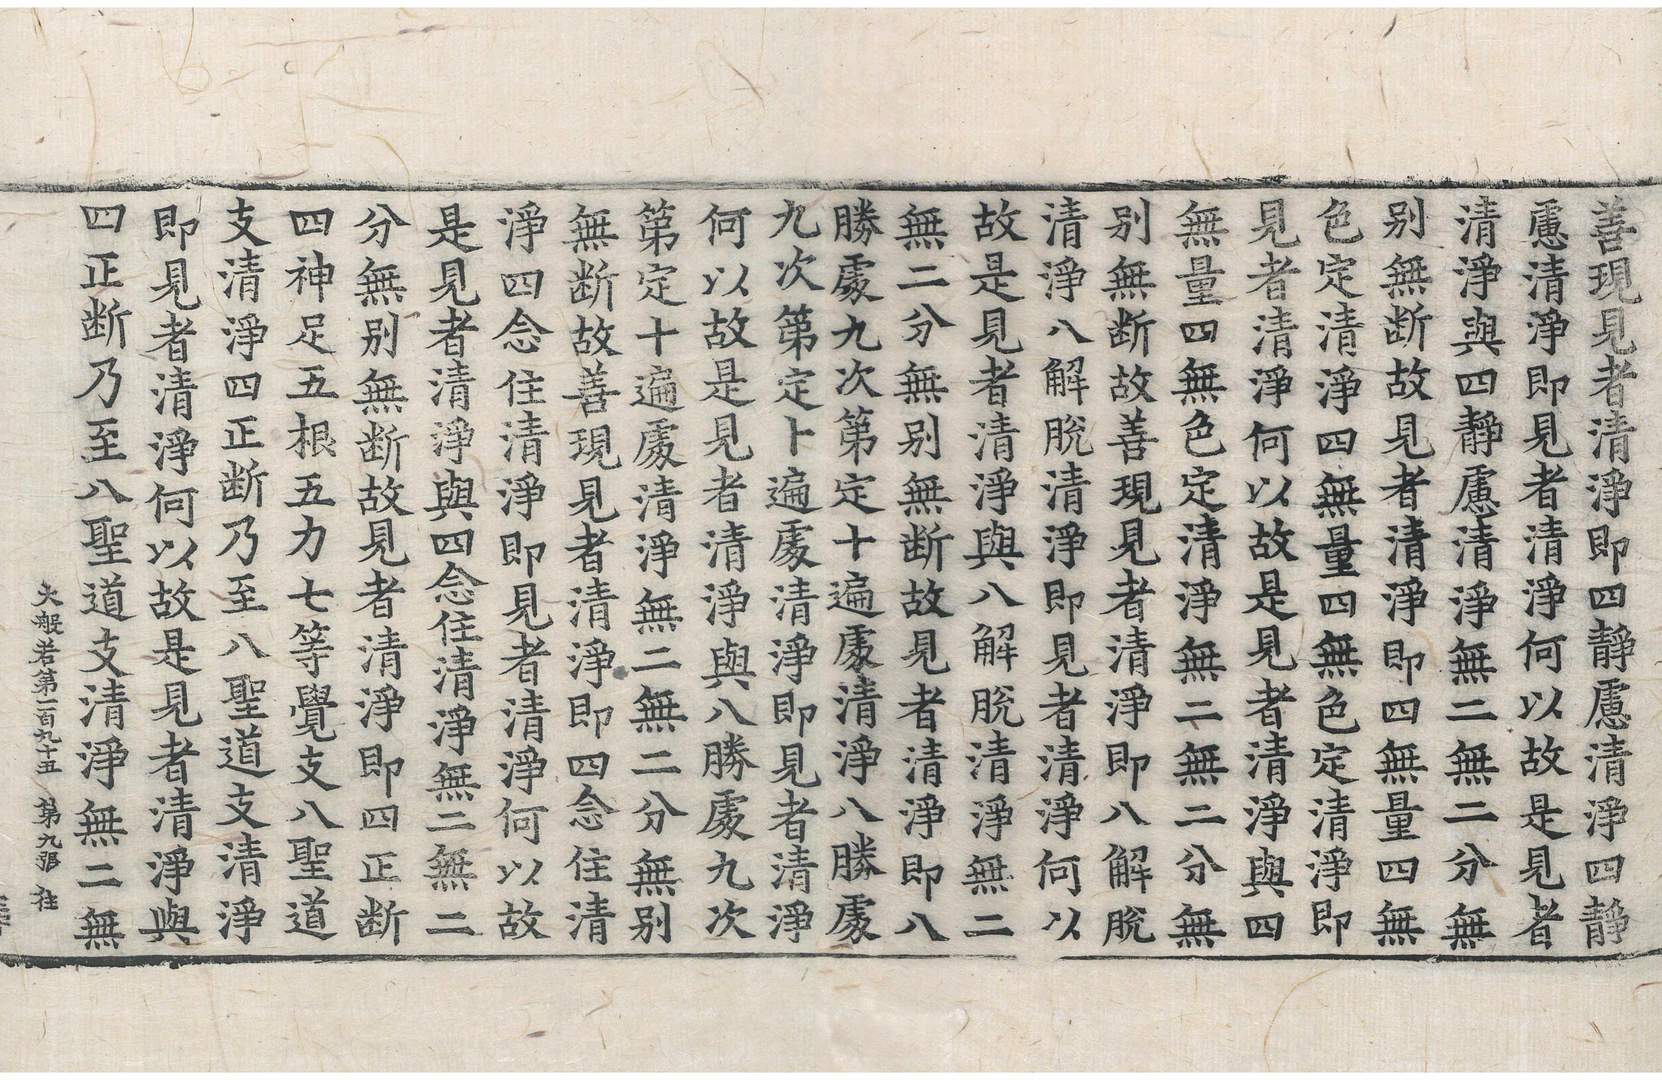 善現見者清淨即四靜慮清淨四靜
慮清淨即見者清淨何以故是見者
清淨與四靜慮清淨無二無二分無
别無断故見者清淨即四無量四無
色定清淨四無量四無色定清淨即
見者清淨何以故是見者清淨與四
無量四無色定清淨無二無二分無
别無断故善現見者清淨即八解脫
清淨八解脫清淨即見者清淨何以
故是見者清淨與八解脫清淨無二
無二分無别無断故見者清淨即八
勝處九次第定十遍處清淨八勝處
九次第定卜遍處清淨即見者清淨
何以故是見者清淨與八勝處九次
第定十遍處清淨無二無二分無别
無断故善現見者清淨即四念住清
淨四念住清淨即見者清淨何以故
是見者清淨與四念住清淨無二無二
分無别無断故見者清淨即四正断
四神足五根五力七等覺支八聖道
支清淨四正断乃至八聖道支清淨
即見者清淨何以故是見者清淨與
四正断乃至八聖道支清淨無二無
大般若第一百九十五 第九張